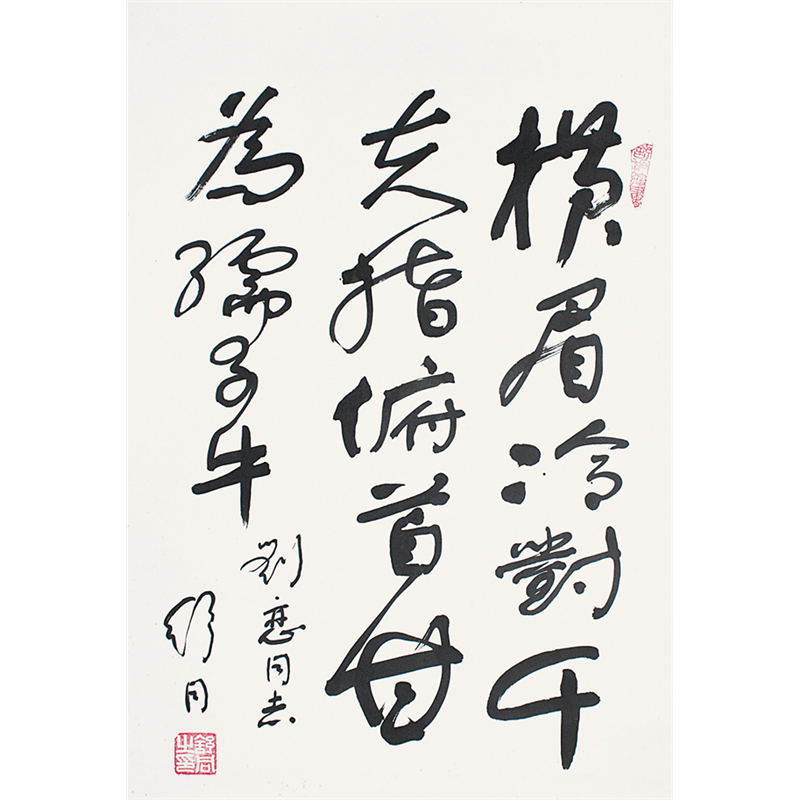 橫眉冷對千
夫指俯首甘
為孺子牛
劉恋同志
舒同
舒同之印